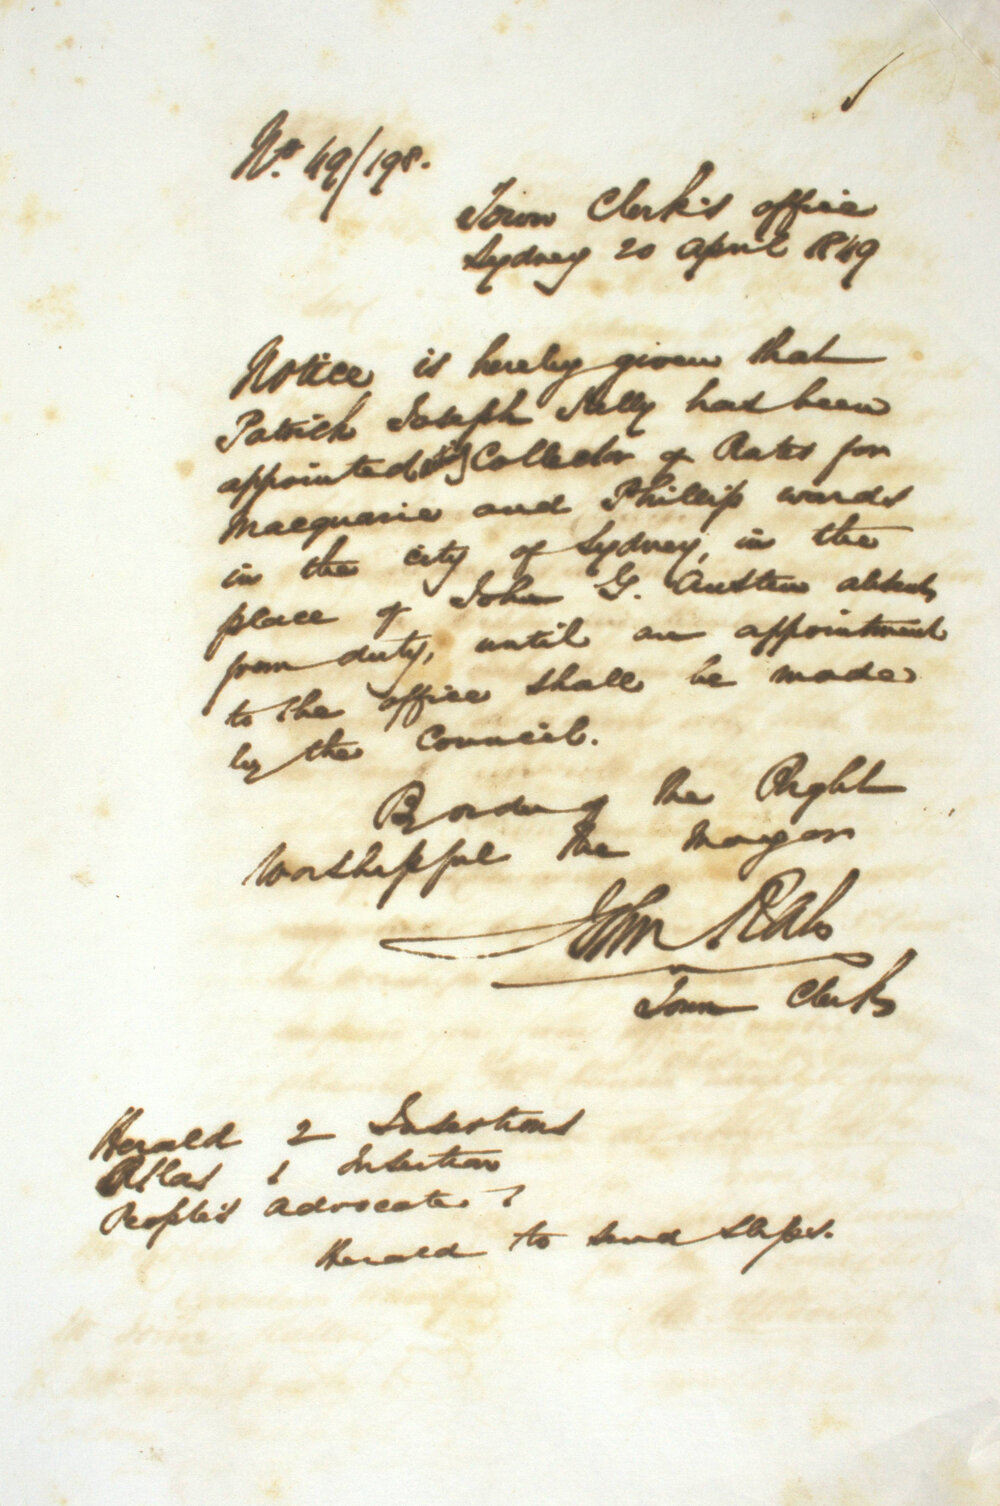 No. 49/198.
Town Clerk's office
Sydney 20 April 1849
Notice is hereby given that
Patrick Joseph Kelly has been
appointed Collector of Rates for
Macquarie and Phillip wards
in the city of Sydney, in the
place of John G. Austen absent
from duty, until an appointment
to the office shall be made
by the Council.
By order of the Right
Worshipful the Mayor
John Rae
Town Clerk
Herald 2 Insertions
Atlas 1 Insertion
People's Advocate 1
Herald to send slips.